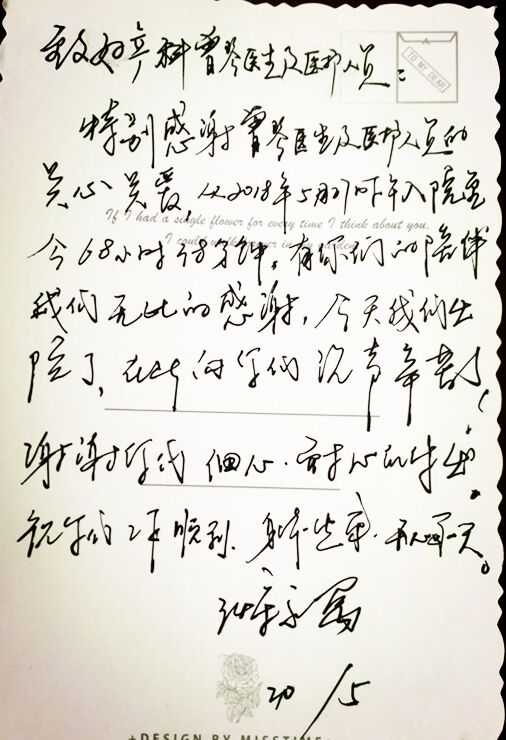 TO MY DEAR
致妇产科曾琴医生及医护人员:
特别感谢曾琴医生及医护人员的
关心关爱,从2018年5月17昨午入院至
If I had a single flower for every time I think about you,
I could walk in my garden
今68小时58分钟,有你们的陪伴
我们无比的感谢,今天我们出
院了,在此向你们说声辛苦了!
谢谢你们细心、耐心的付出。
祝你们工作顺利、身体健康、开心每一天。
20/5
+DESIGN BY MISSTIME